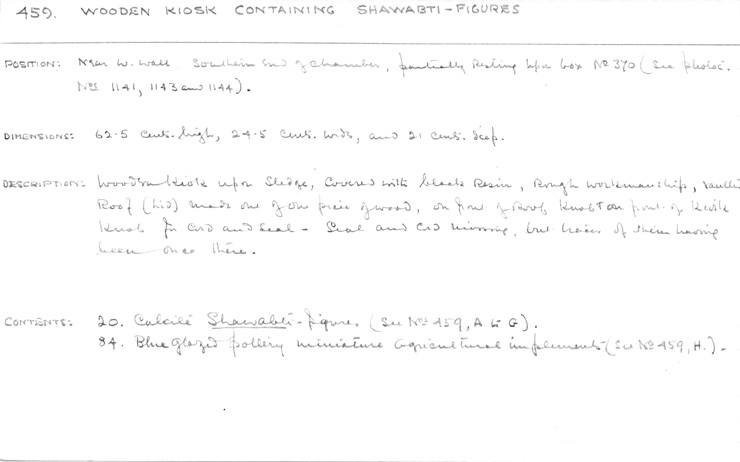 459. WOODEN KIOSK CONTAINING SHAWABTI-FIGURES
POSITION: Near W. Wall Southern end of chamber, partially resting upon box No 370 (see photos.
Nos 1141, 1143 and 1144).
DIMENSIONS: 62·5 cents. high, 24·5 cents. wide, and 21 cents. deep.
DESCRIPTION: Wooden Kiosk upon sledge, covered with black resin, rough workmanship, Vaulted
Roof (lid) made out of one piece of wood, on front of Roof Knob & on front of Kiosk
Knob for cord and seal - Seal and cord missing, but traces of them having
been once there.
CONTENTS: 20. Calcite Shawabti-figures (see Nos 459, A to G).
84. Blue glazed pottery miniature agricultural implements (see No 459, H.) -